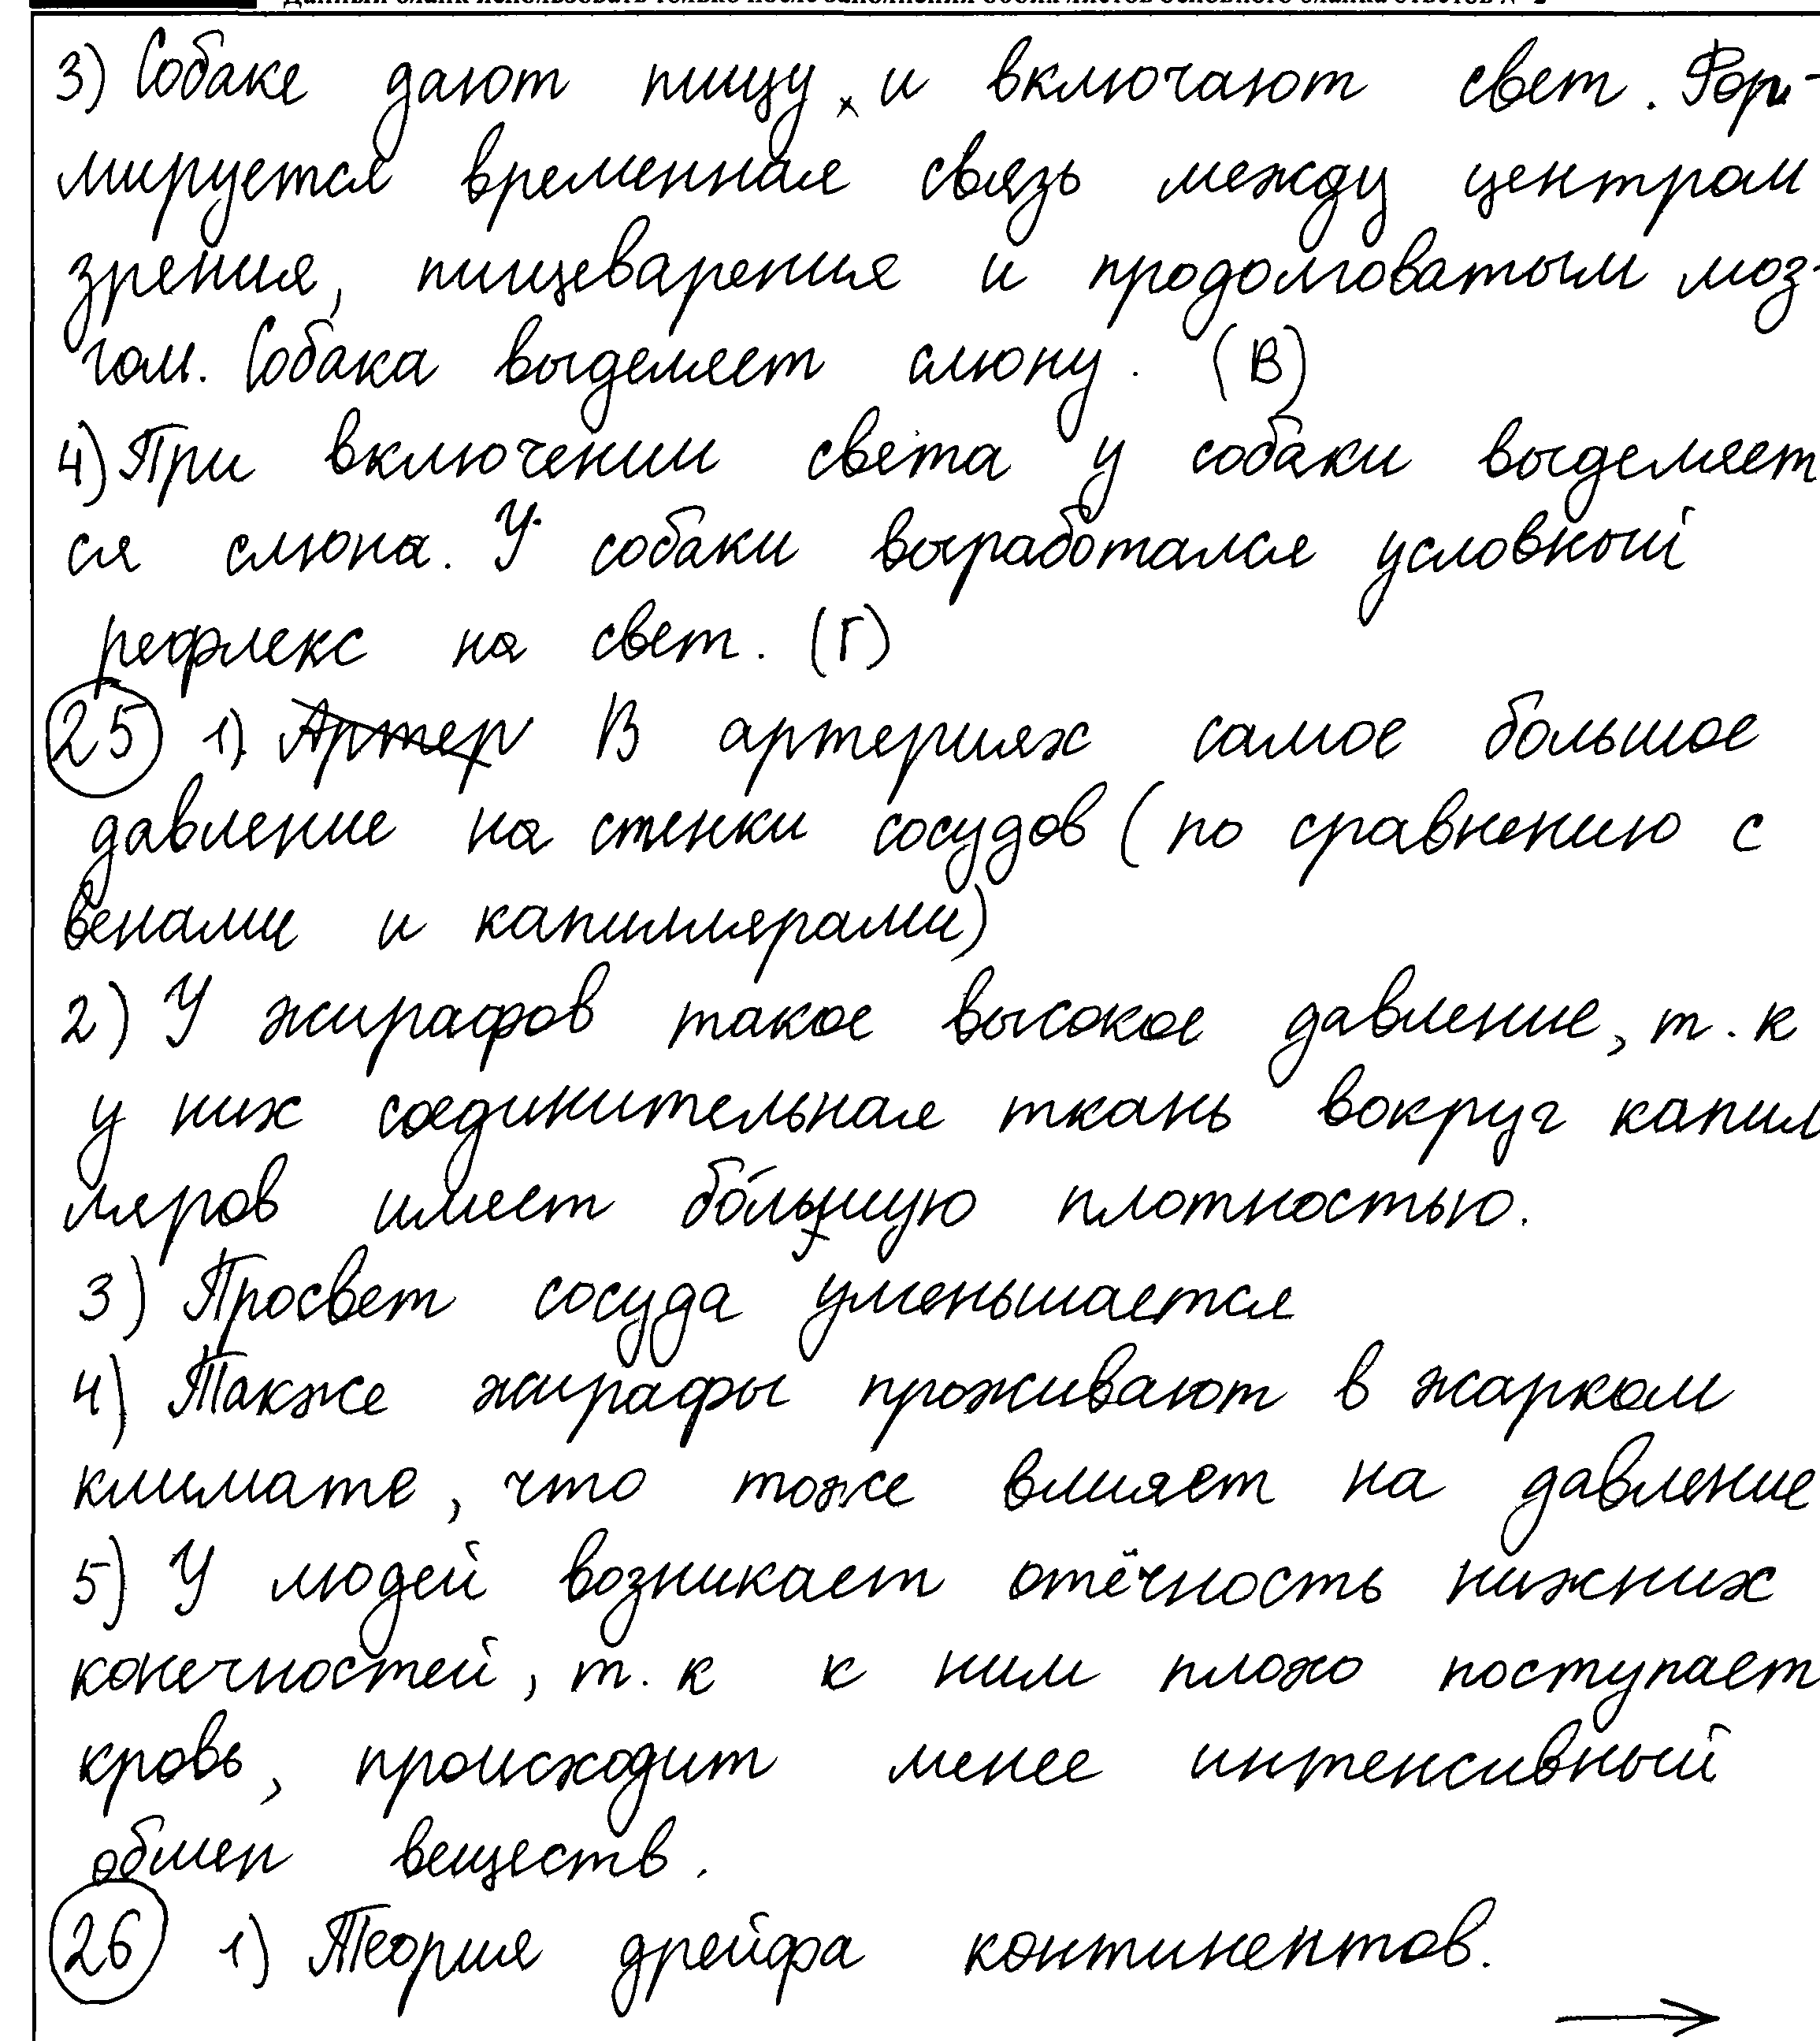 Данный бланк использовать только после заполнения обеих листов основного бланка ответов № 2
3) Собаке дают пищу и включают свет. Фор-
мируется временная связь между центрам
зрения, пищеварения и продолговатым моз-
гом. Собака выделяет слюну. (В)
4) При включении света у собаки выделяет
ся слюна. У собаки выработался условный
рефлекс на свет. (Г)
25 1) Артер В артериях самое большое
давление на стенки сосудов (по сравнению с
венами и капиллярами)
2) У жирафов такое высокое давление, т.к
у них соединительная ткань вокруг капил
ляров имеет бо́льшую плотностью.
3) Просвет сосуда уменьшается
4) Также жирафы проживают в жарком
климате, что тоже влияет на давление
5) У людей возникает отёчность нижних
конечностей, т.к к ним плохо поступает
кровь, происходит менее интенсивный
обмен веществ.
26 1) Теория дрейфа континентов.